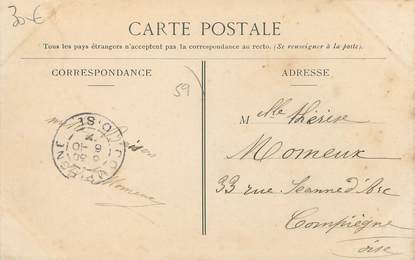 30€
CARTE POSTALE
Tous les pays étrangers n'acceptent pas la correspondance au recto. (Se renseigner à la poste).
CORRESPONDANCE
ADRESSE
59
Mlle Thérèse
Momeux
33 rue Jeanne d'Arc
Compiègne
Oise